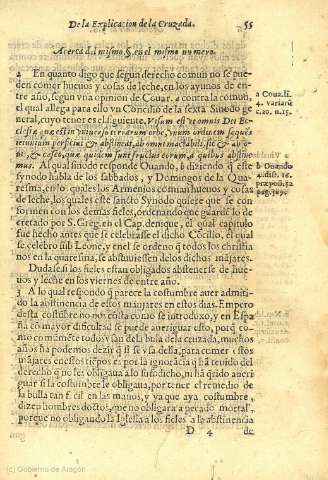 De la Explicacion de la Cruzada. 55
Acerca del mismo §. en el mismo numero.
2 En quanto digo que segun derecho comun no se pue-
den comer huevos y cosas de leche, en los ayunos de en-
tre año, segun vna opinion de Couar. a contra la comun,
el qual allega para ello vn Concilio de la sexta Sinodo ge-
neral, cuyo tenor es el siguiente. Visum est vt omnis Dei Ec-
clesia quae est in vniuerso terrarum orbe, vnum ordinem sequens
ieiunium perficiat & abstineat, ab omni mactabili, sic & ab o-
uis & caseo, quae quidem sunt fructus eorum, a quibus abstine-
mus. Al qual sinodo responde Ouando, b diziendo q este
synodo habla de los sabbados, y Domingos de la Qua-
resma, en los quales los Armenios comian hueuos y cosas
de leche, los quales este sancto Synodo quiere que se con-
formen con los demas fieles, ordenando que guarde lo de-
cretado por S. Greg. en el Cap. denique, el qual capitulo
fue hecho antes que se celebrasse el dicho Cōcilio, el qual
se celebro sub Leone, y en el se ordeno q todos los christia-
nos en la quaresma, se abstuuiessen de los dichos mājares.
Dudase si los fieles estan obligados abstenerse de hue-
uos y leche en los viernes de entre año.
3 A lo qual respondo q parece la costumbre auer admiti-
do la abstinencia de estos majares en estos dias. Empero
desta costūbre no nos costa como se introduxo, y en Espa
ña co mayor dificultad se puede aueriguar esto, porq co-
mo comūmēte todos vsan de la bula de la cruzada, muchos
años ha podemos dezir q si se vsa della, para comer estos
majares en estos tiēpos es: por la ignorācia q hā tenido del
derecho q no les obligaua a lo susodicho, ni hā qrido aueri
guar si la costumbre les obligaua, por tener el remedio de
la bulla tan facil en las manos, y ya que aya costumbre,
dizen hombres doctos, que no obligara a pecado mortal,
porque no obligando la Iglesia a los fieles a la abstinencia
D 4 de
a Coua. li.
4. variarū
c. 20. n. 15.
b Ouando
4. dist. 16.
pag. 389.
(c) Gobierno de Aragón